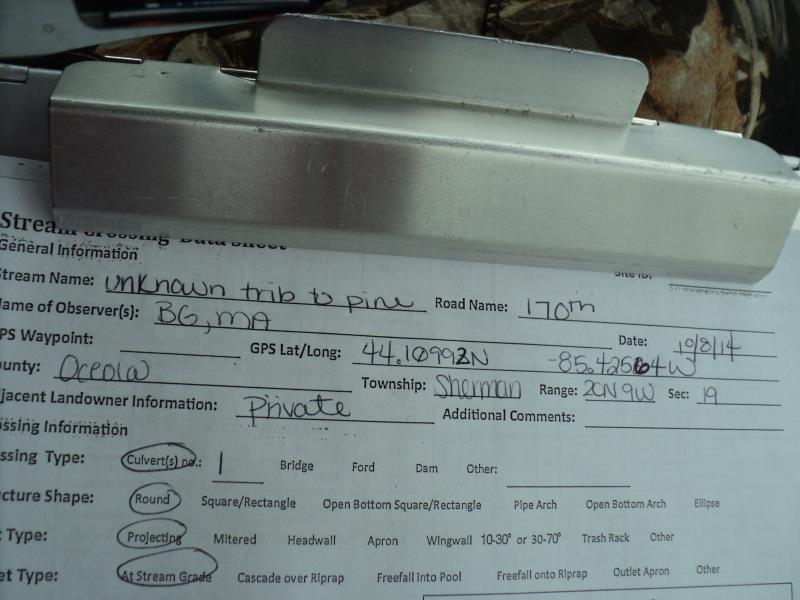 Stream Crossing Data Sheet
General Information
Site ID:
Stream Name: unknown trib to pine Road Name: 170th
Name of Observer(s): BG, MA Date: 10/8/14
GPS Waypoint: GPS Lat/Long: 44.10992N -85.42564W
ounty: Oceola Township: Sherman Range: 20N 9W Sec: 19
djacent Landowner Information: Private Additional Comments:
ossing Information
ssing Type: Culvert(s) no.: 1 Bridge Ford Dam Other:
ucture Shape: Round Square/Rectangle Open Bottom Square/Rectangle Pipe Arch Open Bottom Arch Ellipse
t Type: Projecting Mitered Headwall Apron Wingwall 10-30° or 30-70° Trash Rack Other
et Type: At Stream Grade Cascade over Riprap Freefall into Pool Freefall onto Riprap Outlet Apron Other